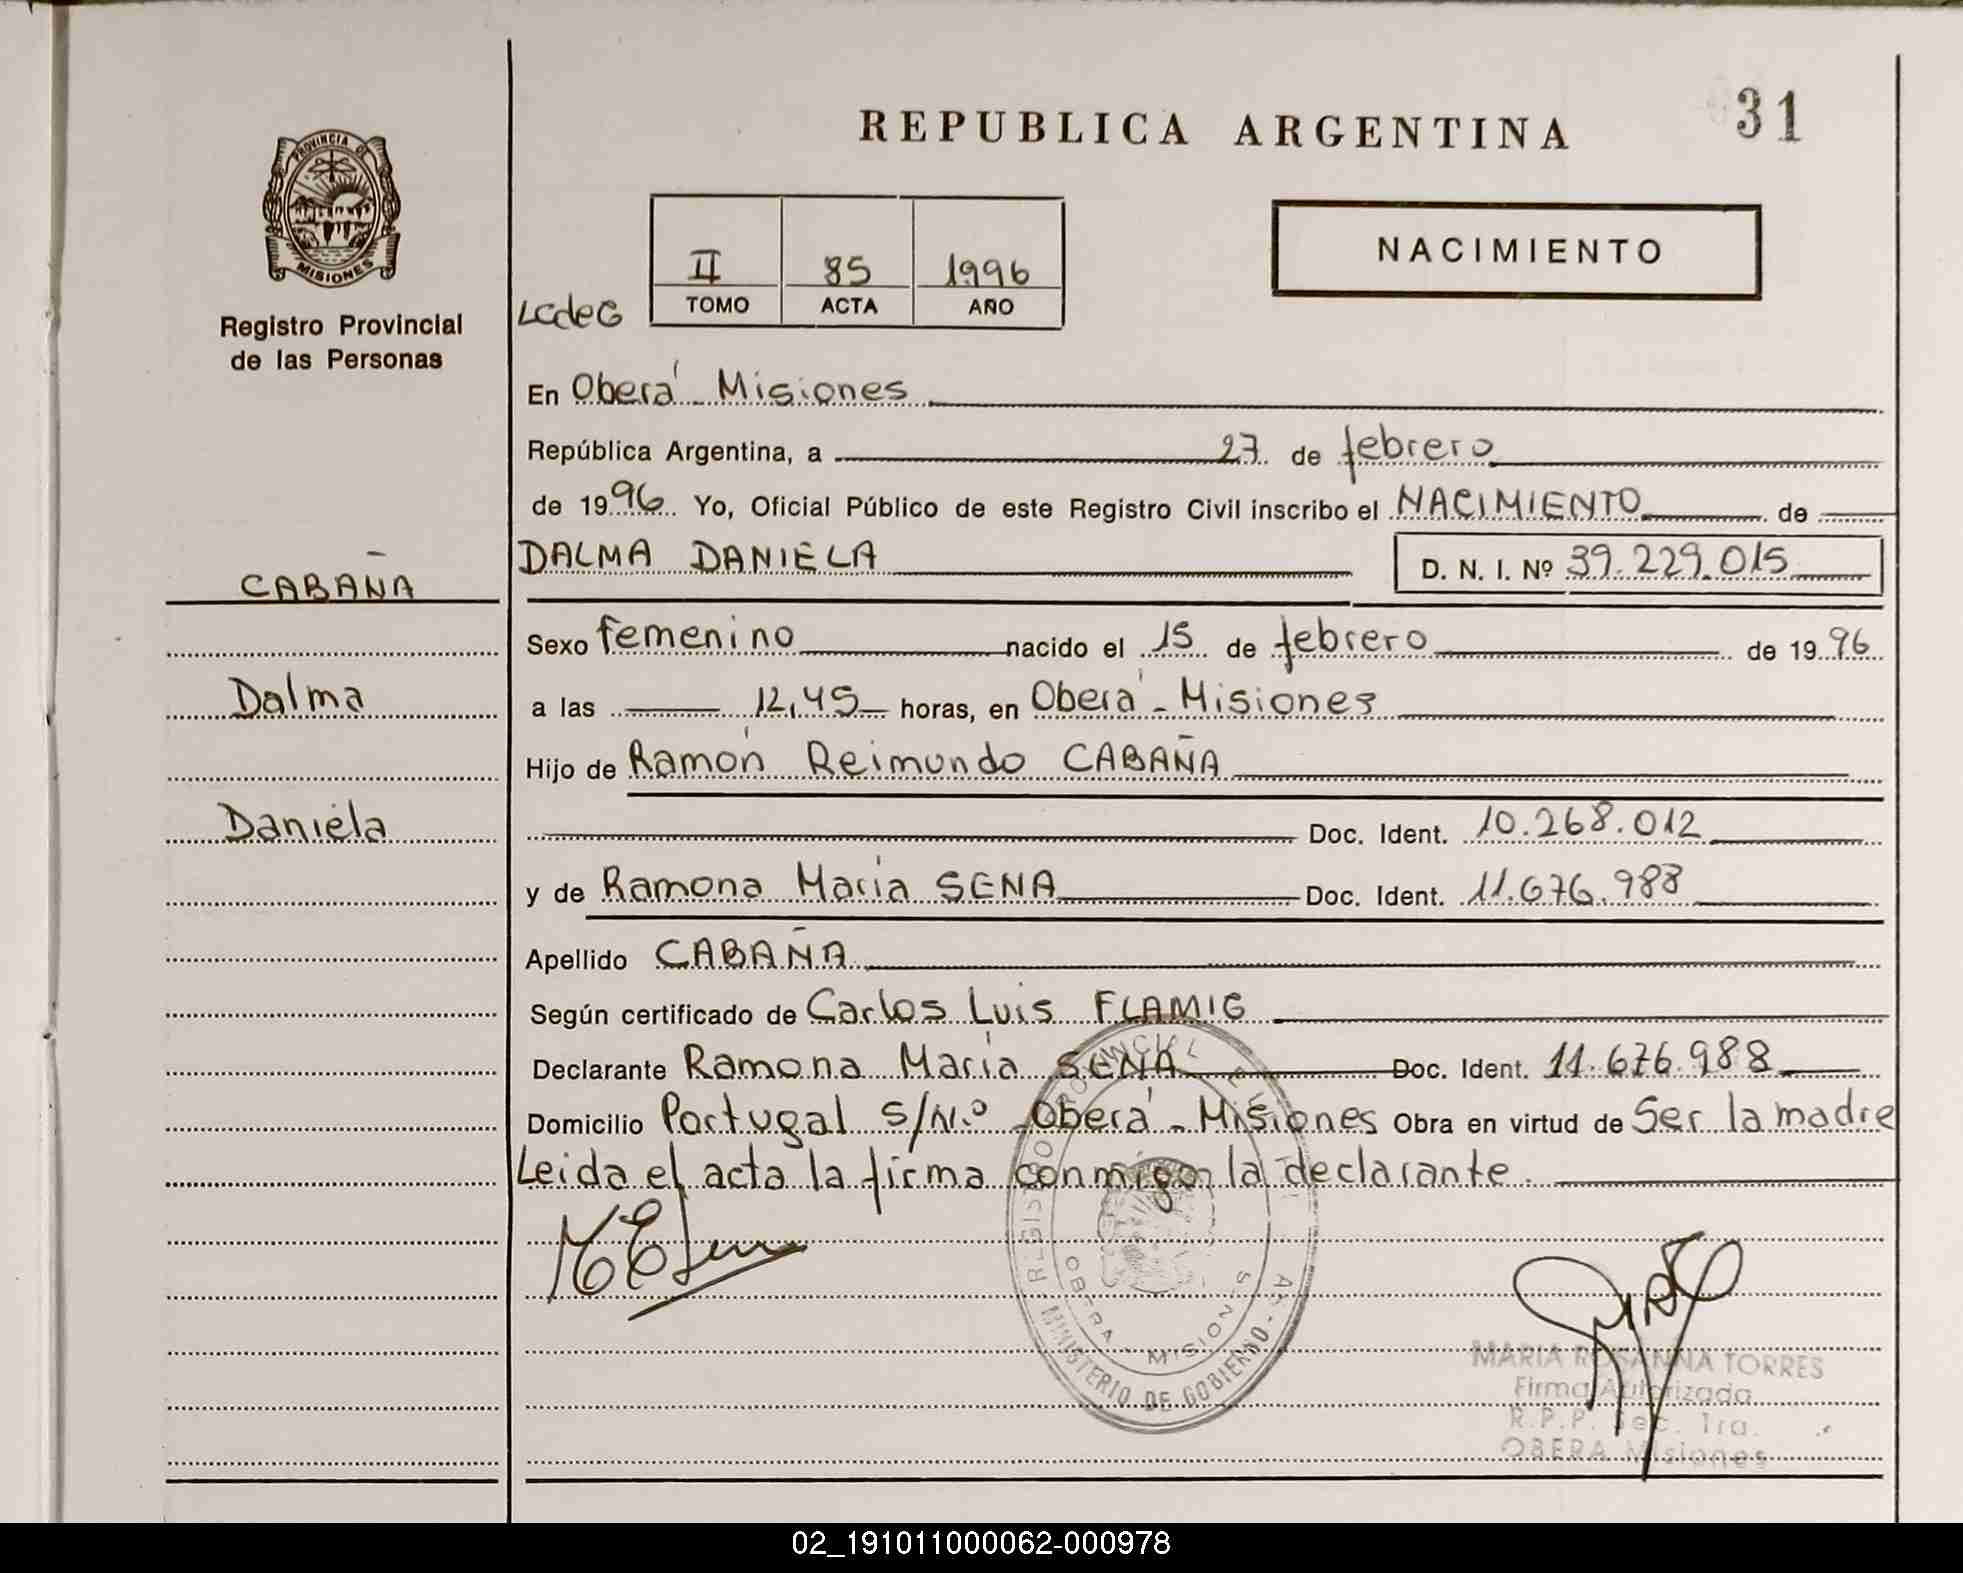 REPUBLICA ARGENTINA
31
PROVINCIA DE
MISIONES
Registro Provincial
de las Personas
II 85 1996
TOMO ACTA AÑO
LCdeG
NACIMIENTO
En Oberá - Misiones
República Argentina, a 27 de febrero
de 1996 Yo, Oficial Público de este Registro Civil inscribo el NACIMIENTO de
DALMA DANIELA D. N. I. Nº 39.229.015
CABAÑA
Dalma
Daniela
Sexo femenino nacido el 15 de febrero de 1996
a las 12,45 horas, en Oberá - Misiones
Hijo de Ramón Reimundo CABAÑA
Doc. Ident. 10.268.012
y de Ramona María SENA Doc. Ident. 11.676.988
Apellido CABAÑA
Según certificado de Carlos Luis FLAMIG
Declarante Ramona María SENA Doc. Ident. 11.676.988
Domicilio Portugal S/N.º - Oberá - Misiones Obra en virtud de Ser la madre
Leida el acta la firma conmigo la declarante.
REGISTRO PROVINCIAL
OBERA - MISIONES
MINISTERIO DE GOBIERNO
MARIA ROSANNA TORRES
Firma Autorizada
R.P.P. Sec. 1ra.
OBERA Misiones
02_191011000062-000978